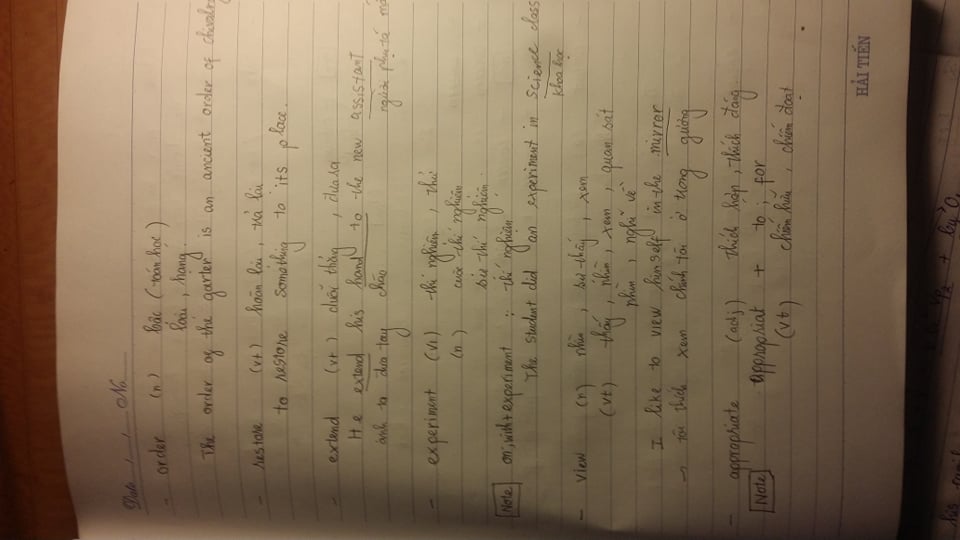 Date / / No
- order (n) bậc (toán học)
loài, hạng
The order of the garter is an ancient order of chivalry
- restore (vt) hoàn lại, trả lại
to restore something to its place.
- extend (vt) duỗi thẳng, đưa ra
He extend his hand to the new assistant
anh ta đưa tay chào người phụ tá
- experiment (vi) thí nghiệm, thử
(n) cuộc thí nghiệm
sự thí nghiệm
Note on, with + experiment : thí nghiệm
The student did an experiment in Science class
khoa học
- view (n) nhìn, sự thấy, xem
(vt) thấy, nhìn, xem, quan sát
nhìn, nghĩ về
I like to view himself in the mirror
→ tôi thích xem chính tôi ở trong gương
- appropriate (adj) thích hợp, thích đáng
Note appropriat + to; for
(vt) chiếm hữu, chiếm đoạt
HẢI TIẾN